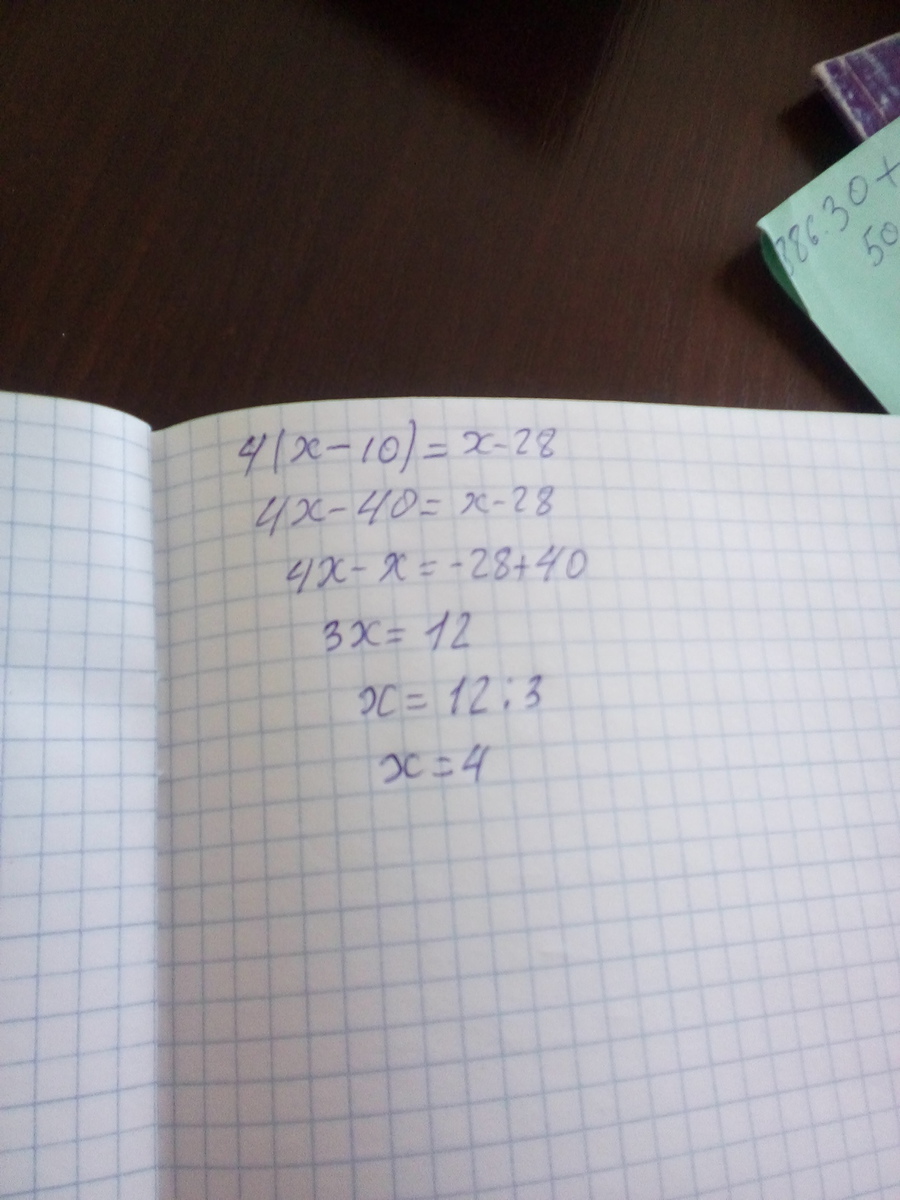 386.30+
50
4(x-10)=x-28
4x-40=x-28
4x-x=-28+40
3x=12
x=12:3
x=4